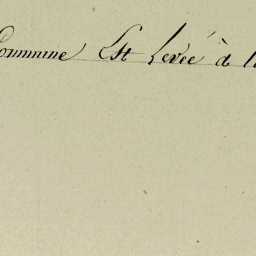 Commune Est Levée à l